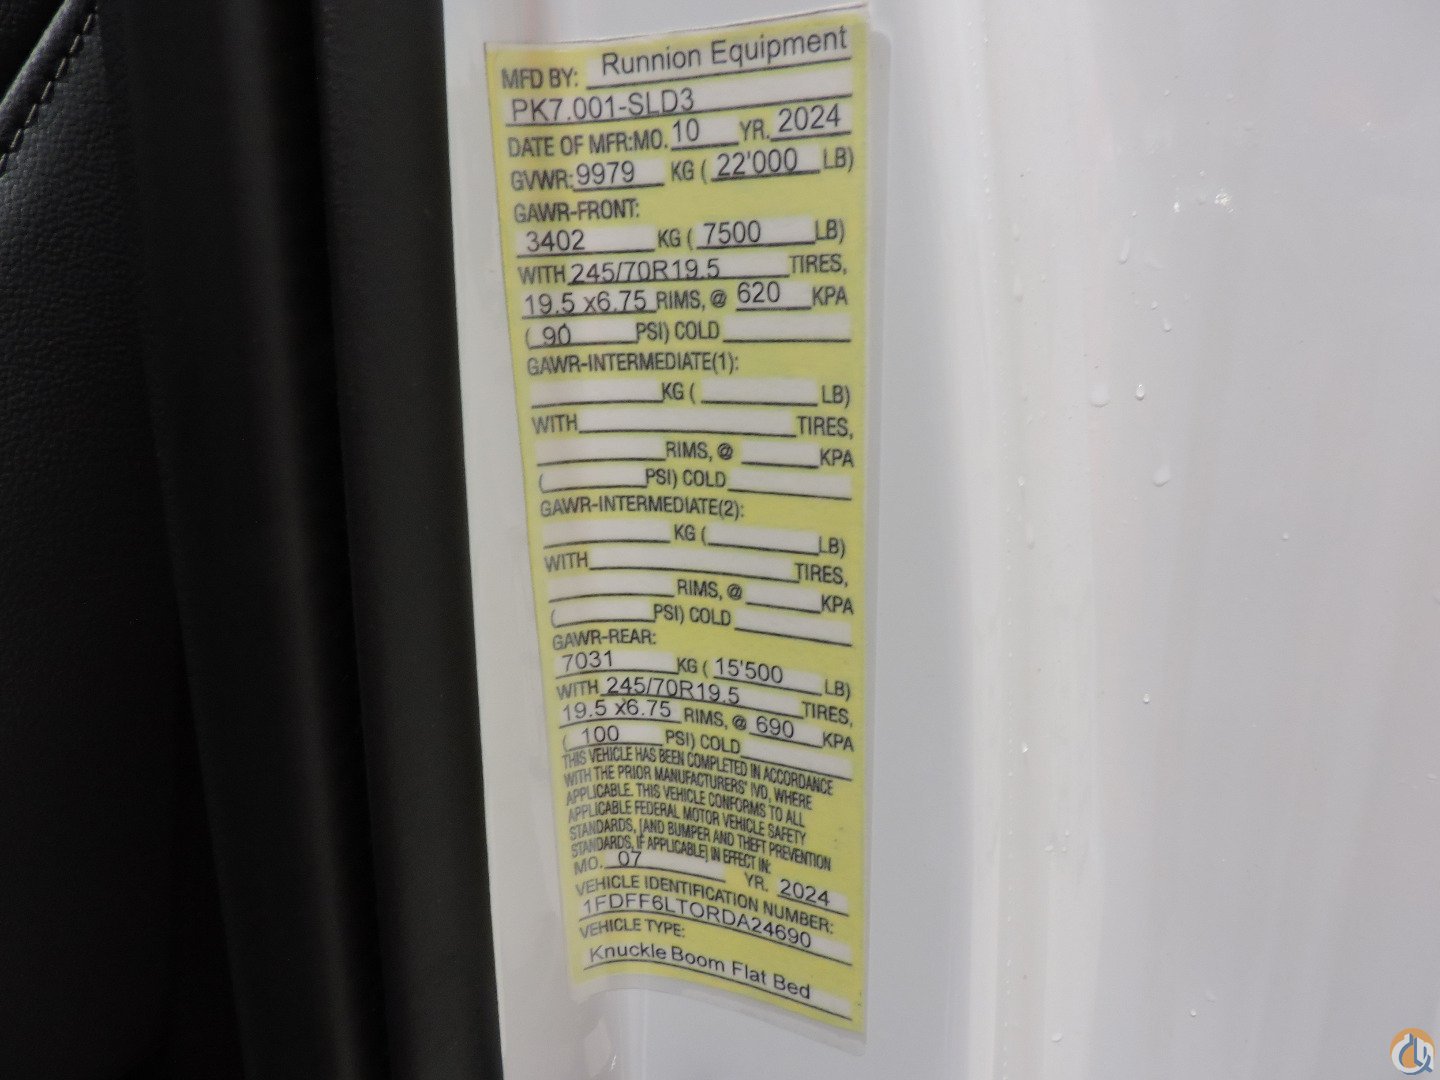 MFD BY: Runnion Equipment
PK7.001-SLD3
DATE OF MFR:MO. 10 YR. 2024
GVWR: 9979 KG ( 22'000 LB)
GAWR-FRONT:
3402 KG ( 7500 LB)
WITH 245/70R19.5 TIRES,
19.5 x6.75 RIMS, @ 620 KPA
( 90 PSI) COLD
GAWR-INTERMEDIATE(1):
KG ( LB)
WITH TIRES,
RIMS, @ KPA
( PSI) COLD
GAWR-INTERMEDIATE(2):
KG ( LB)
WITH TIRES,
RIMS, @ KPA
( PSI) COLD
GAWR-REAR:
7031 KG ( 15'500 LB)
WITH 245/70R19.5 TIRES,
19.5 x6.75 RIMS, @ 690 KPA
( 100 PSI) COLD
THIS VEHICLE HAS BEEN COMPLETED IN ACCORDANCE
WITH THE PRIOR MANUFACTURERS' IVD, WHERE
APPLICABLE. THIS VEHICLE CONFORMS TO ALL
APPLICABLE FEDERAL MOTOR VEHICLE SAFETY
STANDARDS, [AND BUMPER AND THEFT PREVENTION
STANDARDS, IF APPLICABLE] IN EFFECT IN:
MO. 07 YR. 2024
VEHICLE IDENTIFICATION NUMBER:
1FDFF6LTORDA24690
VEHICLE TYPE:
Knuckle Boom Flat Bed